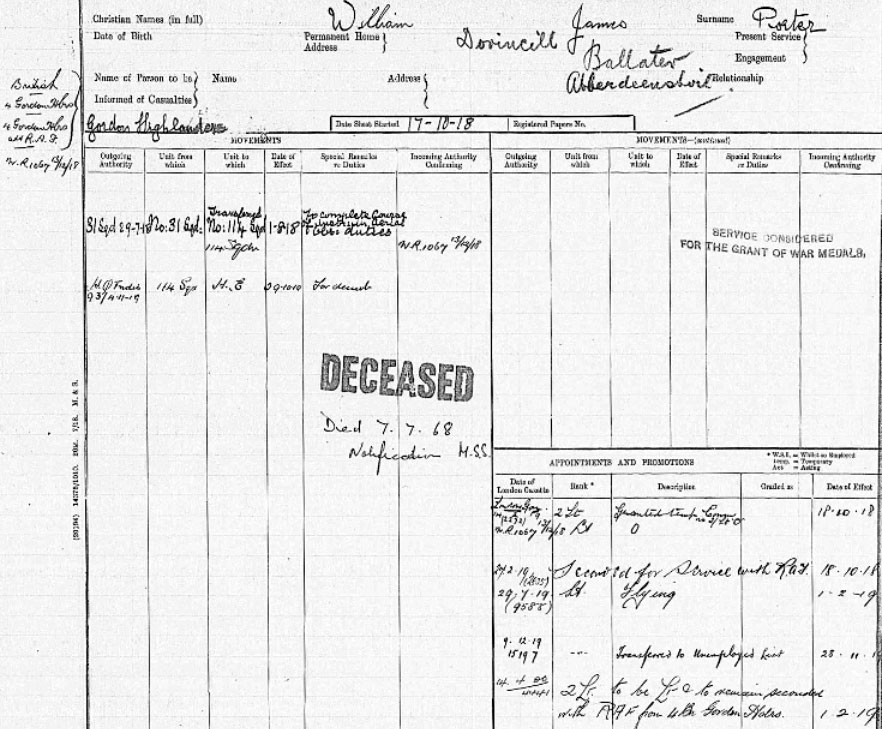 Christian Names (in full) William James Surname Porter
Date of Birth
Permanent Home Address
Ballater
Present Service
Engagement
Name of Person to be Informed of Casualties
Name
Address
Relationship
British
4 Gordon Hdrs
4 Gordon Hdrs
att R.A.F.
W.R.1067 13/12/18
Gordon Highlanders
Date Sheet Started 17-10-18
Registered Papers No.
MOVEMENTS
Outgoing Authority
Unit from which
Unit to which
Date of Effect
Special Remarks re Duties
Incoming Authority Confirming
31 Sqd 29-7-18
No: 31 Sqd:
Transferred
No: 114 Sqd
114 Sqdn
1-8-18
To complete Course
duties
W.R.1067 13/12/18
114 Sqn
H.E
For demob
DECEASED
Died 7. 7. 68
Notification M.S.S.
MOVEMENTS—(continued)
Outgoing Authority
Unit from which
Unit to which
Date of Effect
Special Remarks re Duties
Incoming Authority Confirming
SERVICE CONSIDERED
FOR THE GRANT OF WAR MEDALS.
* W.S.E. = Whilst so Employed
temp. = Temporary
Act = Acting
APPOINTMENTS AND PROMOTIONS
Date of London Gazette
Rank *
Description
Graded as
Date of Effect
2 Lt
Granted temp. Comm
18-10-18
W.R.1067 13/12/18 Lt
O
Seconded for Service with R.A.F. 18.10.18
29.7.19
(9588)
Lt.
Flying
1-2-19
9.12.19
15197
Transferred to Unemployed List
2 Lt. to be Lt & to remain seconded
with RAF from 4Bn Gordon Hdrs. 1-2-19